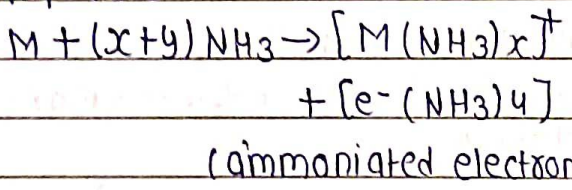 M + (x+y) NH3 → [M(NH3)x]+
+ [e-(NH3)y]
(ammoniated electron